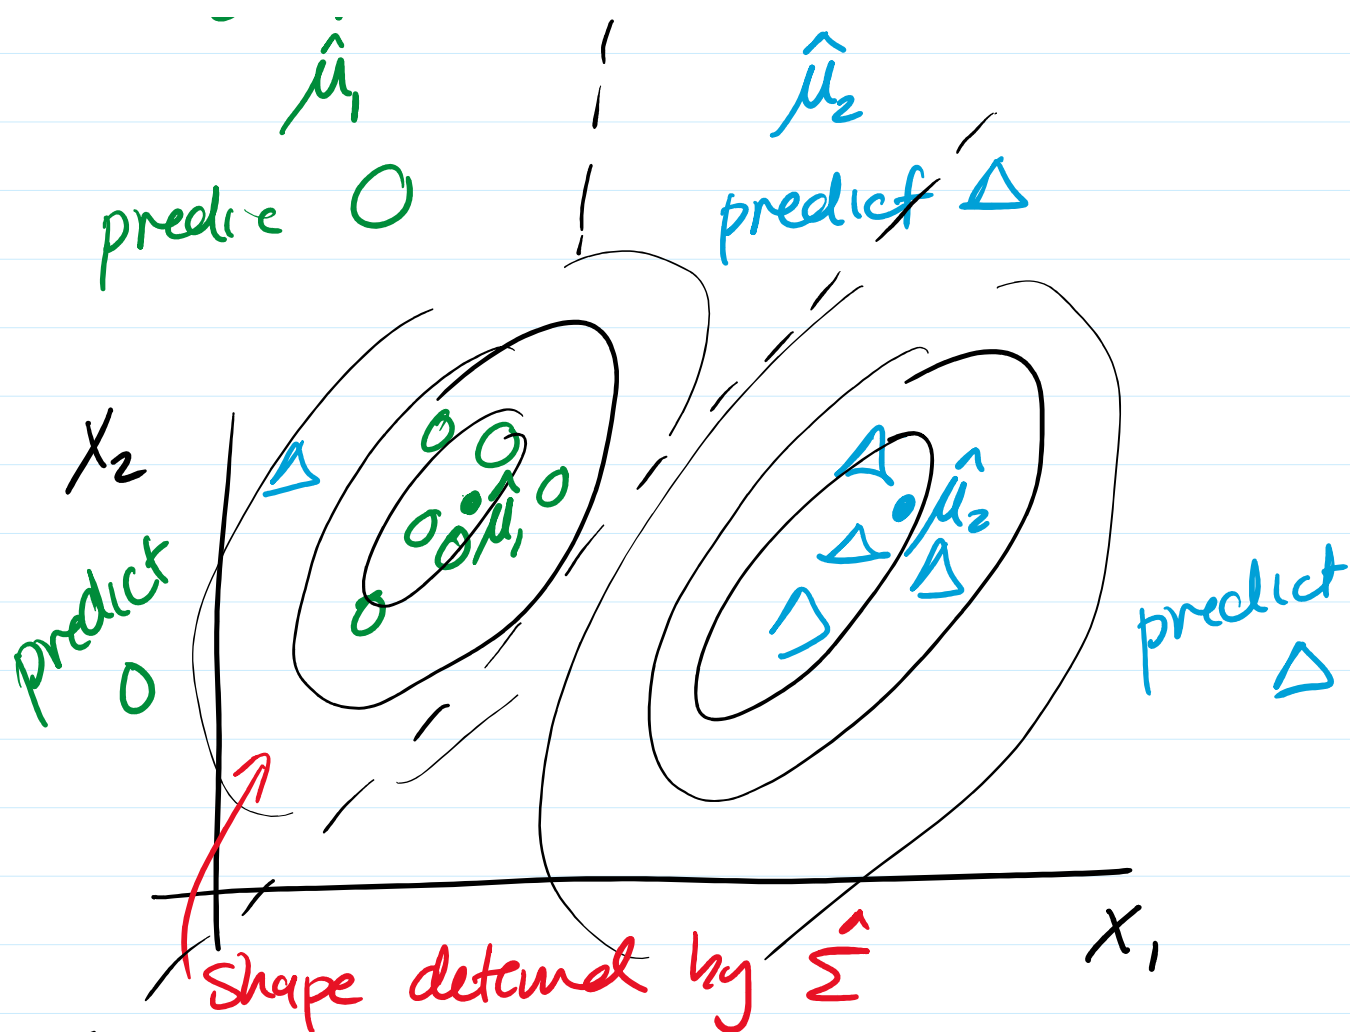 μ̂₁
μ̂₂
predic O
predict Δ
x₂
μ̂₁
μ̂₂
predict
O
predict
Δ
x₁
shape detemd by Σ̂